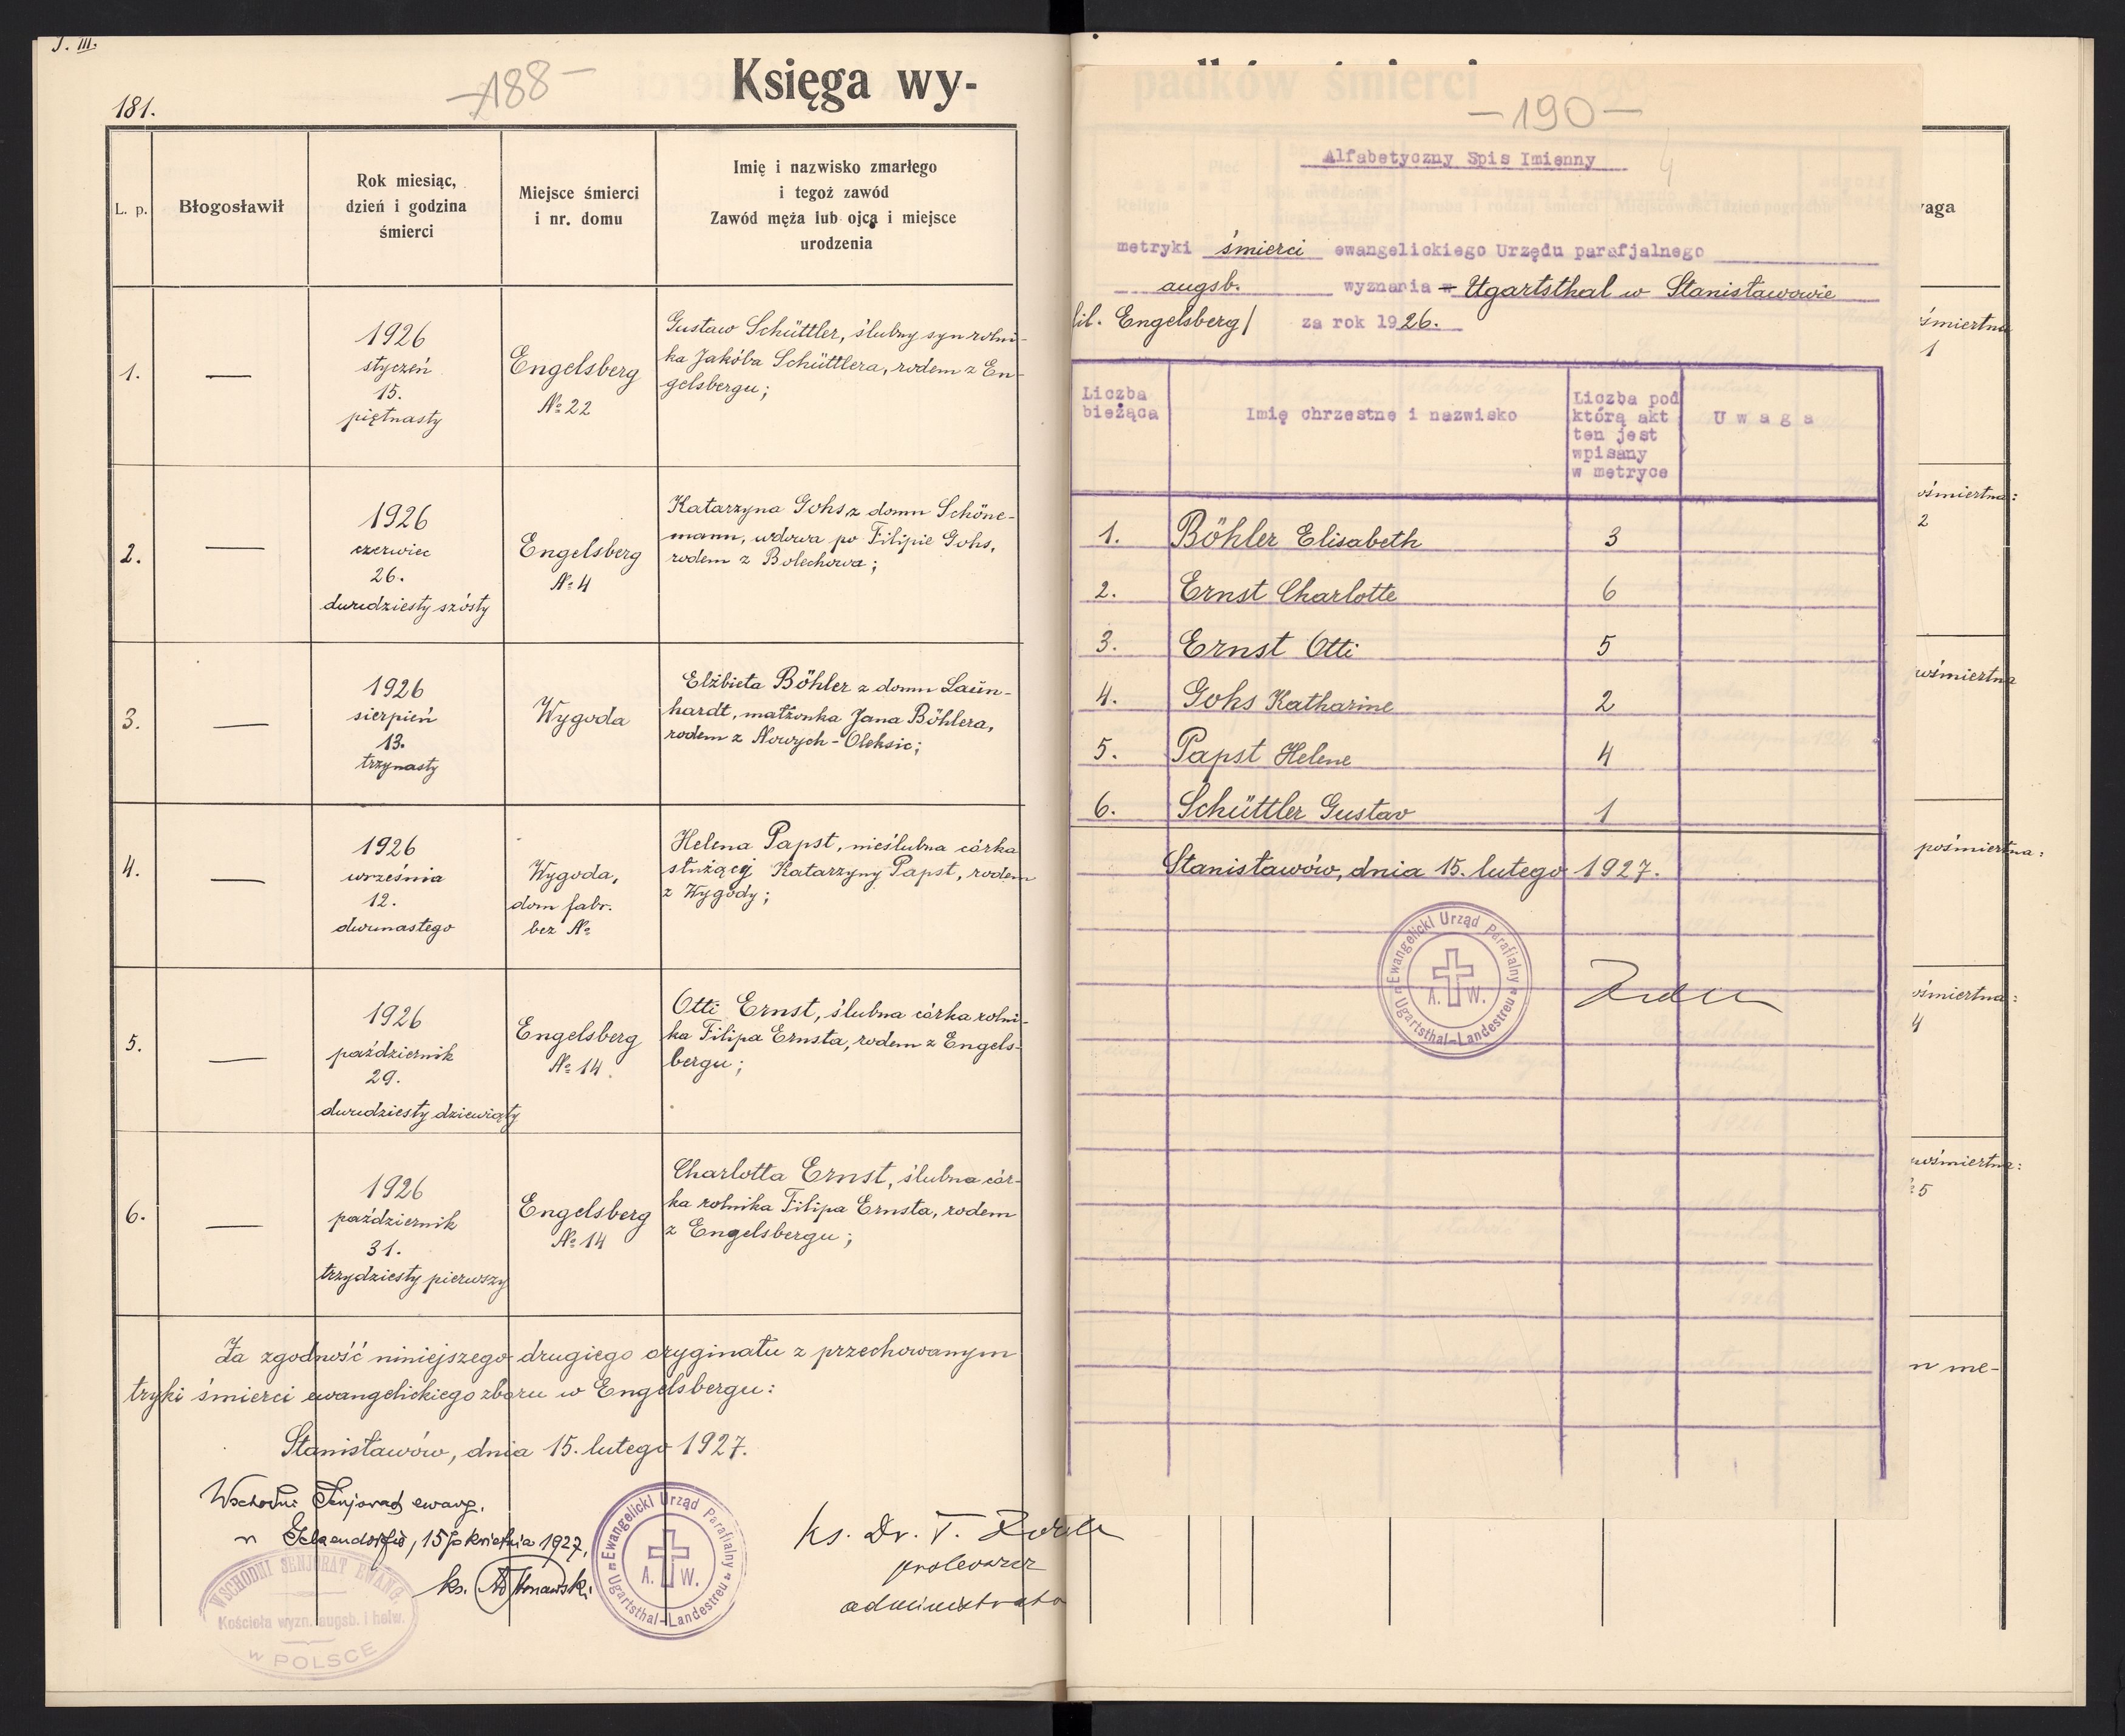 J. III.
181.
-188-
Księga wy-
L. p.
Błogosławił
Rok miesiąc,
dzień i godzina
śmierci
Miejsce śmierci
i nr. domu
Imię i nazwisko zmarłego
i tegoż zawód
Zawód męża lub ojca i miejsce
urodzenia
1.
—
1926
styczeń
15.
piętnasty
Engelsberg
№ 22
Gustaw Schüttler, ślubny syn rolni-
ka Jakóba Schüttlera, rodem z En-
gelsbergu;
2.
—
1926
czerwiec
26.
dwudziesty szósty
Engelsberg
№ 4
Katarzyna Gohs z domu Schöne-
mann, wdowa po Filipie Gohs,
rodem z Bolechowa;
3.
—
1926
sierpień
13.
trzynasty
Wygoda
Elżbieta Böhler z domu Laun-
hardt, małżonka Jana Böhlera,
rodem z Nowych-Oleksic;
4.
—
1926
września
12.
dwunastego
Wygoda,
dom fabr.
bez №
Helena Papst, nieślubna córka
służącej Katarzyny Papst, rodem
z Wygody;
5.
—
1926
październik
29.
dwudziesty dziewiąty
Engelsberg
№ 14
Otti Ernst, ślubna córka rolni-
ka Filipa Ernsta, rodem z Engels-
bergu;
6.
—
1926
październik
31.
trzydziesty pierwszy
Engelsberg
№ 14
Charlotta Ernst, ślubna cór-
ka rolnika Filipa Ernsta, rodem
z Engelsbergu;
Za zgodność niniejszego drugiego oryginału z przechowanym
tryki śmierci ewangelickiego zboru w Engelsbergu:
Stanisławów, dnia 15. lutego 1927.
Wschodni Senjorat ewang.
15go kwietnia 1927.
ks.
WSCHODNI SENJORAT EWANG.
Kościoła wyzn. augsb. i helw.
w POLSCE
Ewangelicki Urząd Parafialny
A. W.
Ugartsthal-Landestreu
ks. Dr. T.
proboszcz
administrator
padków śmierci
-190-
4
Alfabetyczny Spis Imienny
metryki śmierci ewangelickiego Urzędu parafjalnego
augsb. wyznania w Ugartsthal w Stanisławowie
fil. Engelsberg/ za rok 1926.
Liczba
bieżąca
Imię chrzestne i nazwisko
Liczba pod
którą akt
ten jest
wpisany
w metryce
U w a g a
1. Böhler Elisabeth 3
2. Ernst Charlotte 6
3. Ernst Otti 5
4. Gohs Katharine 2
5. Papst Helene 4
6. Schüttler Gustav 1
Stanisławów, dnia 15. lutego 1927.
Ewangelicki Urząd Parafialny
A. W.
Ugartsthal-Landestreu
waga
ośmiertna
1
ośmiertna:
2
ośmiertna
pośmiertna:
ośmiertna:
4
pośmiertna:
5
n me-